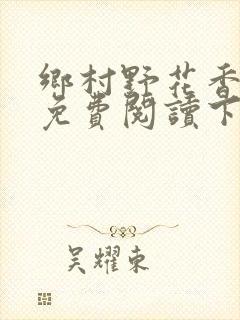 鄉村野花香
免費閱讀下
吳耀東